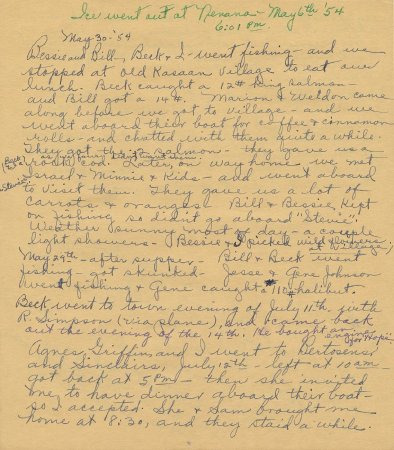 Ice went out at Nenana - May 6th '54
6:01 PM
May-30-'54
Bessie and Bill, Beck & I - went fishing - and we
stopped at old Kasaan Village to eat our
lunch. Beck caught a 12# King salmon -
and Bill got a 14#. Marion & Weldon came
along before we got to village - and we
went aboard their boat for coffee & cinnamon
rolls - and chatted with them quite a while.
They got salmon - they gave us a
rock cod. Later, on way home we met
Israel & Minnie & Kids - and went aboard
to visit them. They gave us a lot of
carrots & oranges. Bill & Bessie, Kept
on fishing so didn't go aboard "Stevie",
Weather sunny most of day - a couple
light showers - Bessie & I picked wild flowers
at Village
May 29th - after supper - Bill & Beck went
fishing - got skunked - Jesse & Gene Johnson
went fishing & Gene caught 11# halibut.
Beck went to town evening of July 11th, with
R. Simpson (via plane), and came back
out the evening of the 14th. He bought an
engine for "Hope".
Agnes, Griffin, and I went to Hertosens
and Sinclairs, July 12th - left at 10 am -
got back at 5 PM - then she invited
me to have dinner aboard their boat -
so I accepted. She & Sam brought me
home at 8:30, and they staid a while.